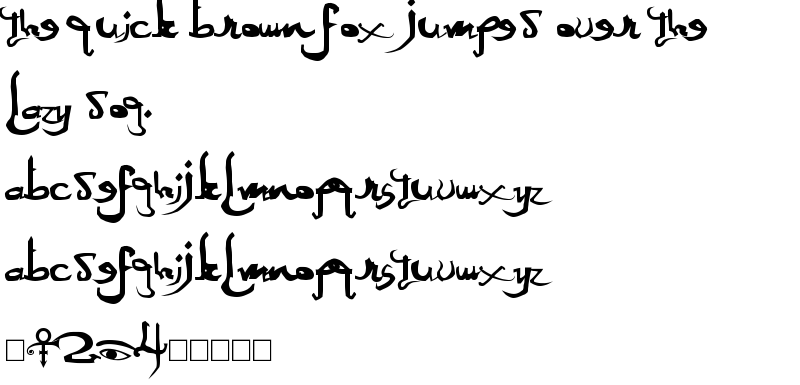 the quick brown fox jumped over the
lazy dog.
abcdefghijklmnopqrstuvwxyz
abcdefghijklmnopqrstuvwxyz
2 4